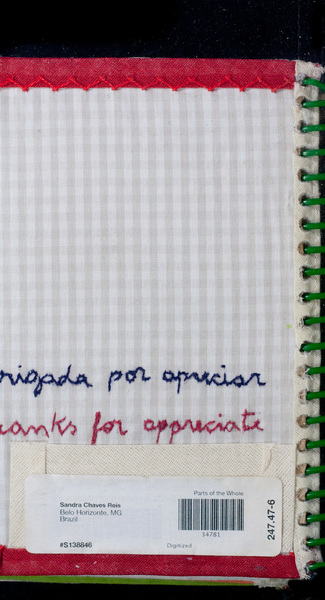 rigada por apreciar
hanks for appreciate
Parts of the Whole
Sandra Chaves Reis
Belo Horizonte, MG
Brazil
34781
#S138846
Digitized
247.47-6